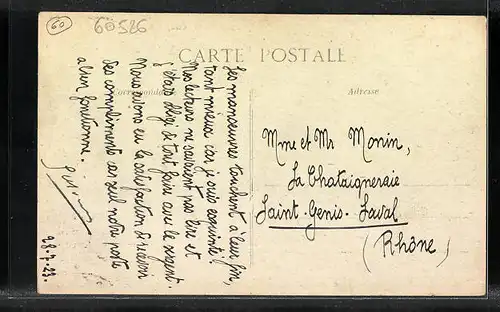 60
60586
CARTE POSTALE
Correspondance
Adresse
Les manœuvres touchent à leur fin,
tant mieux car je suis esquinté.
Mes lecteurs ne savaient pas lire et
j'étais obligé de tout faire avec le sergent.
Nous avons eu la satisfaction de recevoir
des compliments car seul notre poste
a bien fonctionné.
28-7-23.
Mme et Mr Monin,
La Chataigneraie
Saint-Genis-Laval
(Rhône)